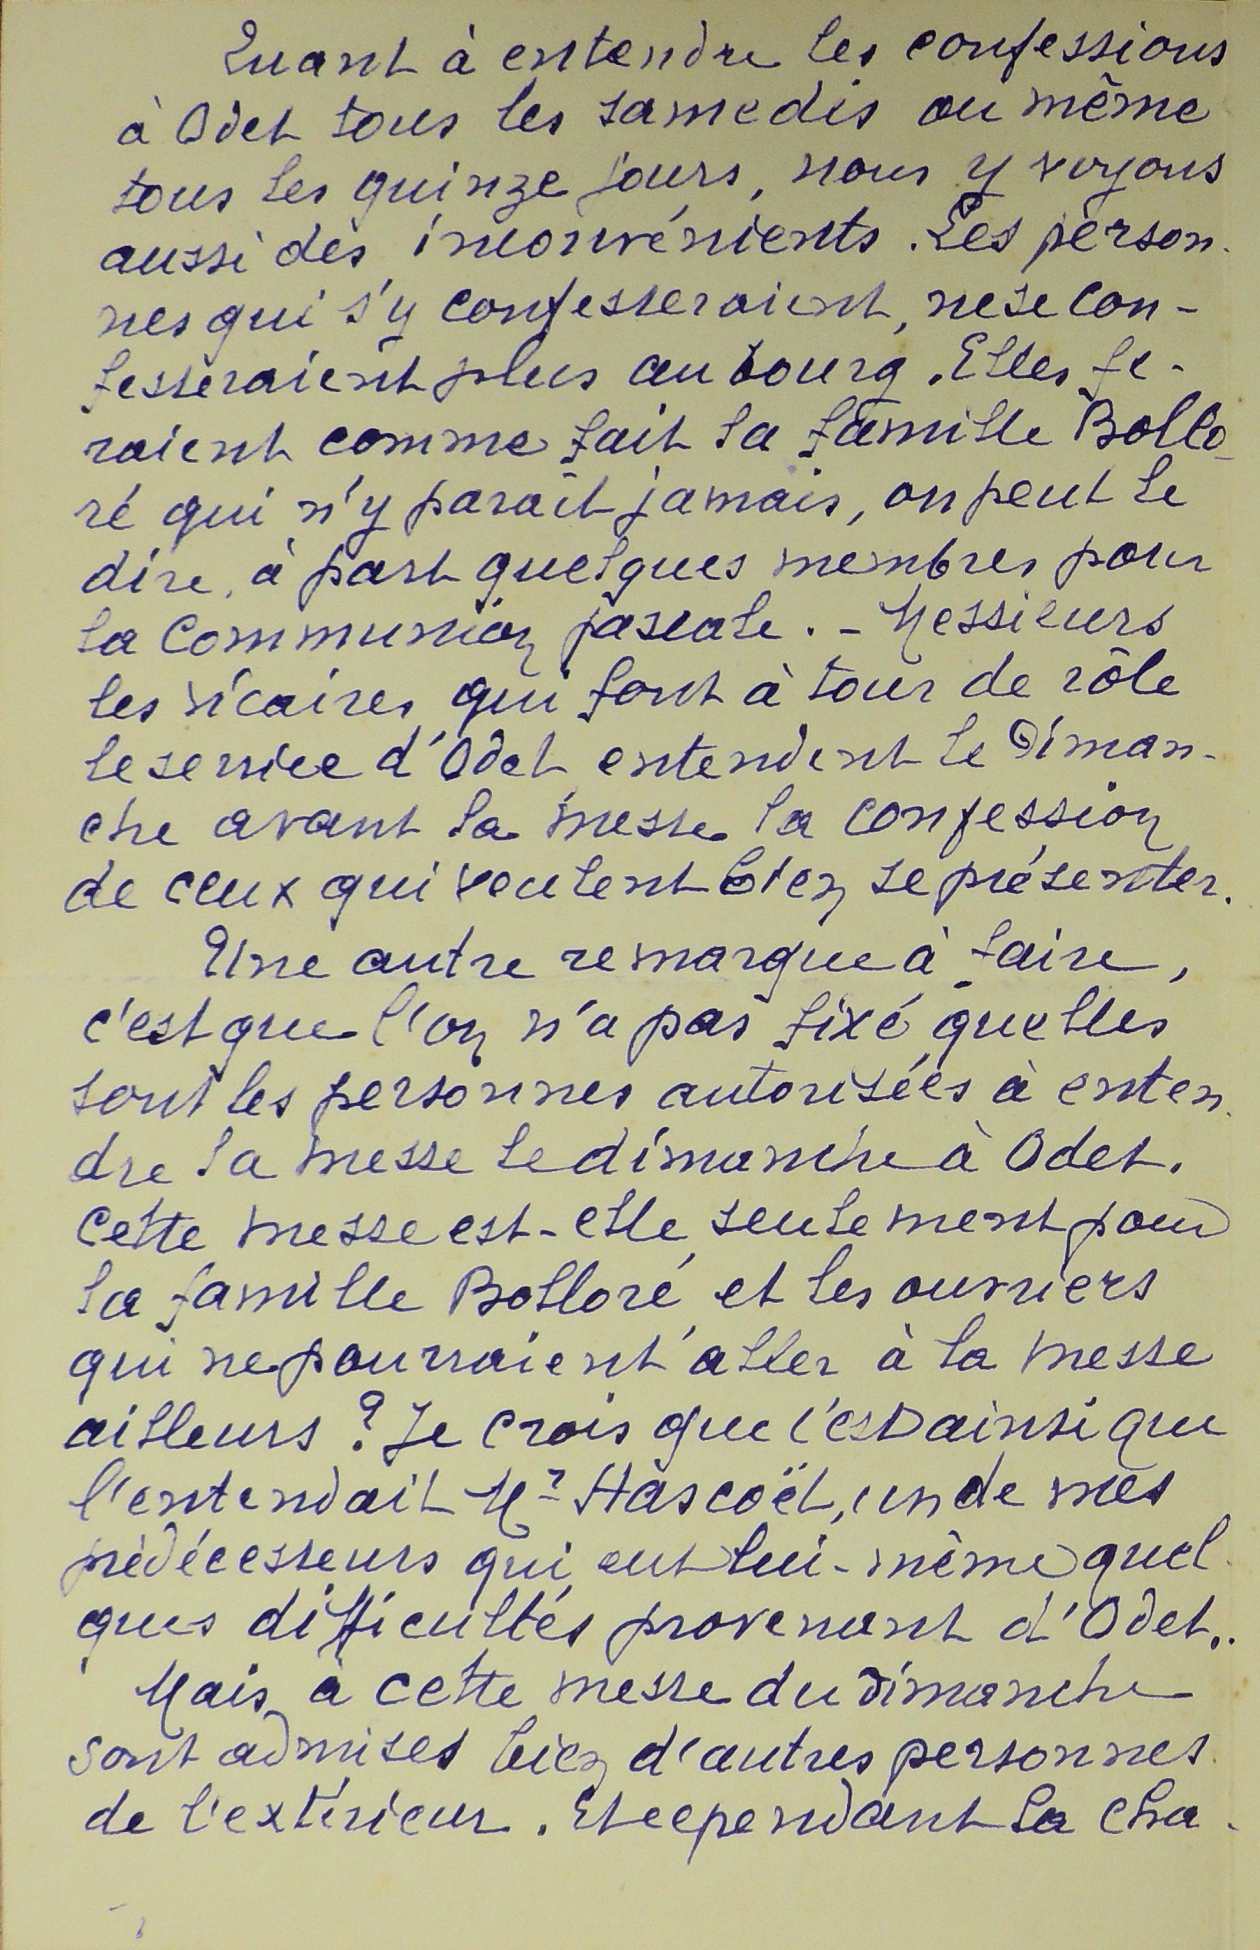 Quant à entendre les confessions
à Odet tous les samedis ou même
tous les quinze jours, nous y voyons
aussi des inconvénients. Les person-
nes qui s'y confesseraient, ne se con-
fesseraient plus au bourg. Elles fe-
raient comme fait la famille Bollo-
ré qui n'y parait jamais, on peut le
dire, à part quelques membres pour
la Communion pascale. - Messieurs
les vicaires, qui font à tour de rôle
le service d'Odet entendent le Diman-
che avant la messe la confession
de ceux qui veulent bien se présenter.
Une autre remarque à faire,
c'est que l'on n'a pas fixé quelles
sont les personnes autorisées à enten-
dre la messe le dimanche à Odet.
Cette messe est-elle seulement pour
la famille Bolloré et les ouvriers
qui ne pourraient aller à la messe
ailleurs ? Je crois que c'est ainsi que
l'entendait Mr Hascoët, un de mes
prédécesseurs qui eut lui-même quel-
ques difficultés provenant d'Odet..
Mais à cette messe du dimanche
sont admises bien d'autres personnes
de l'extérieur. Et cependant la cha-